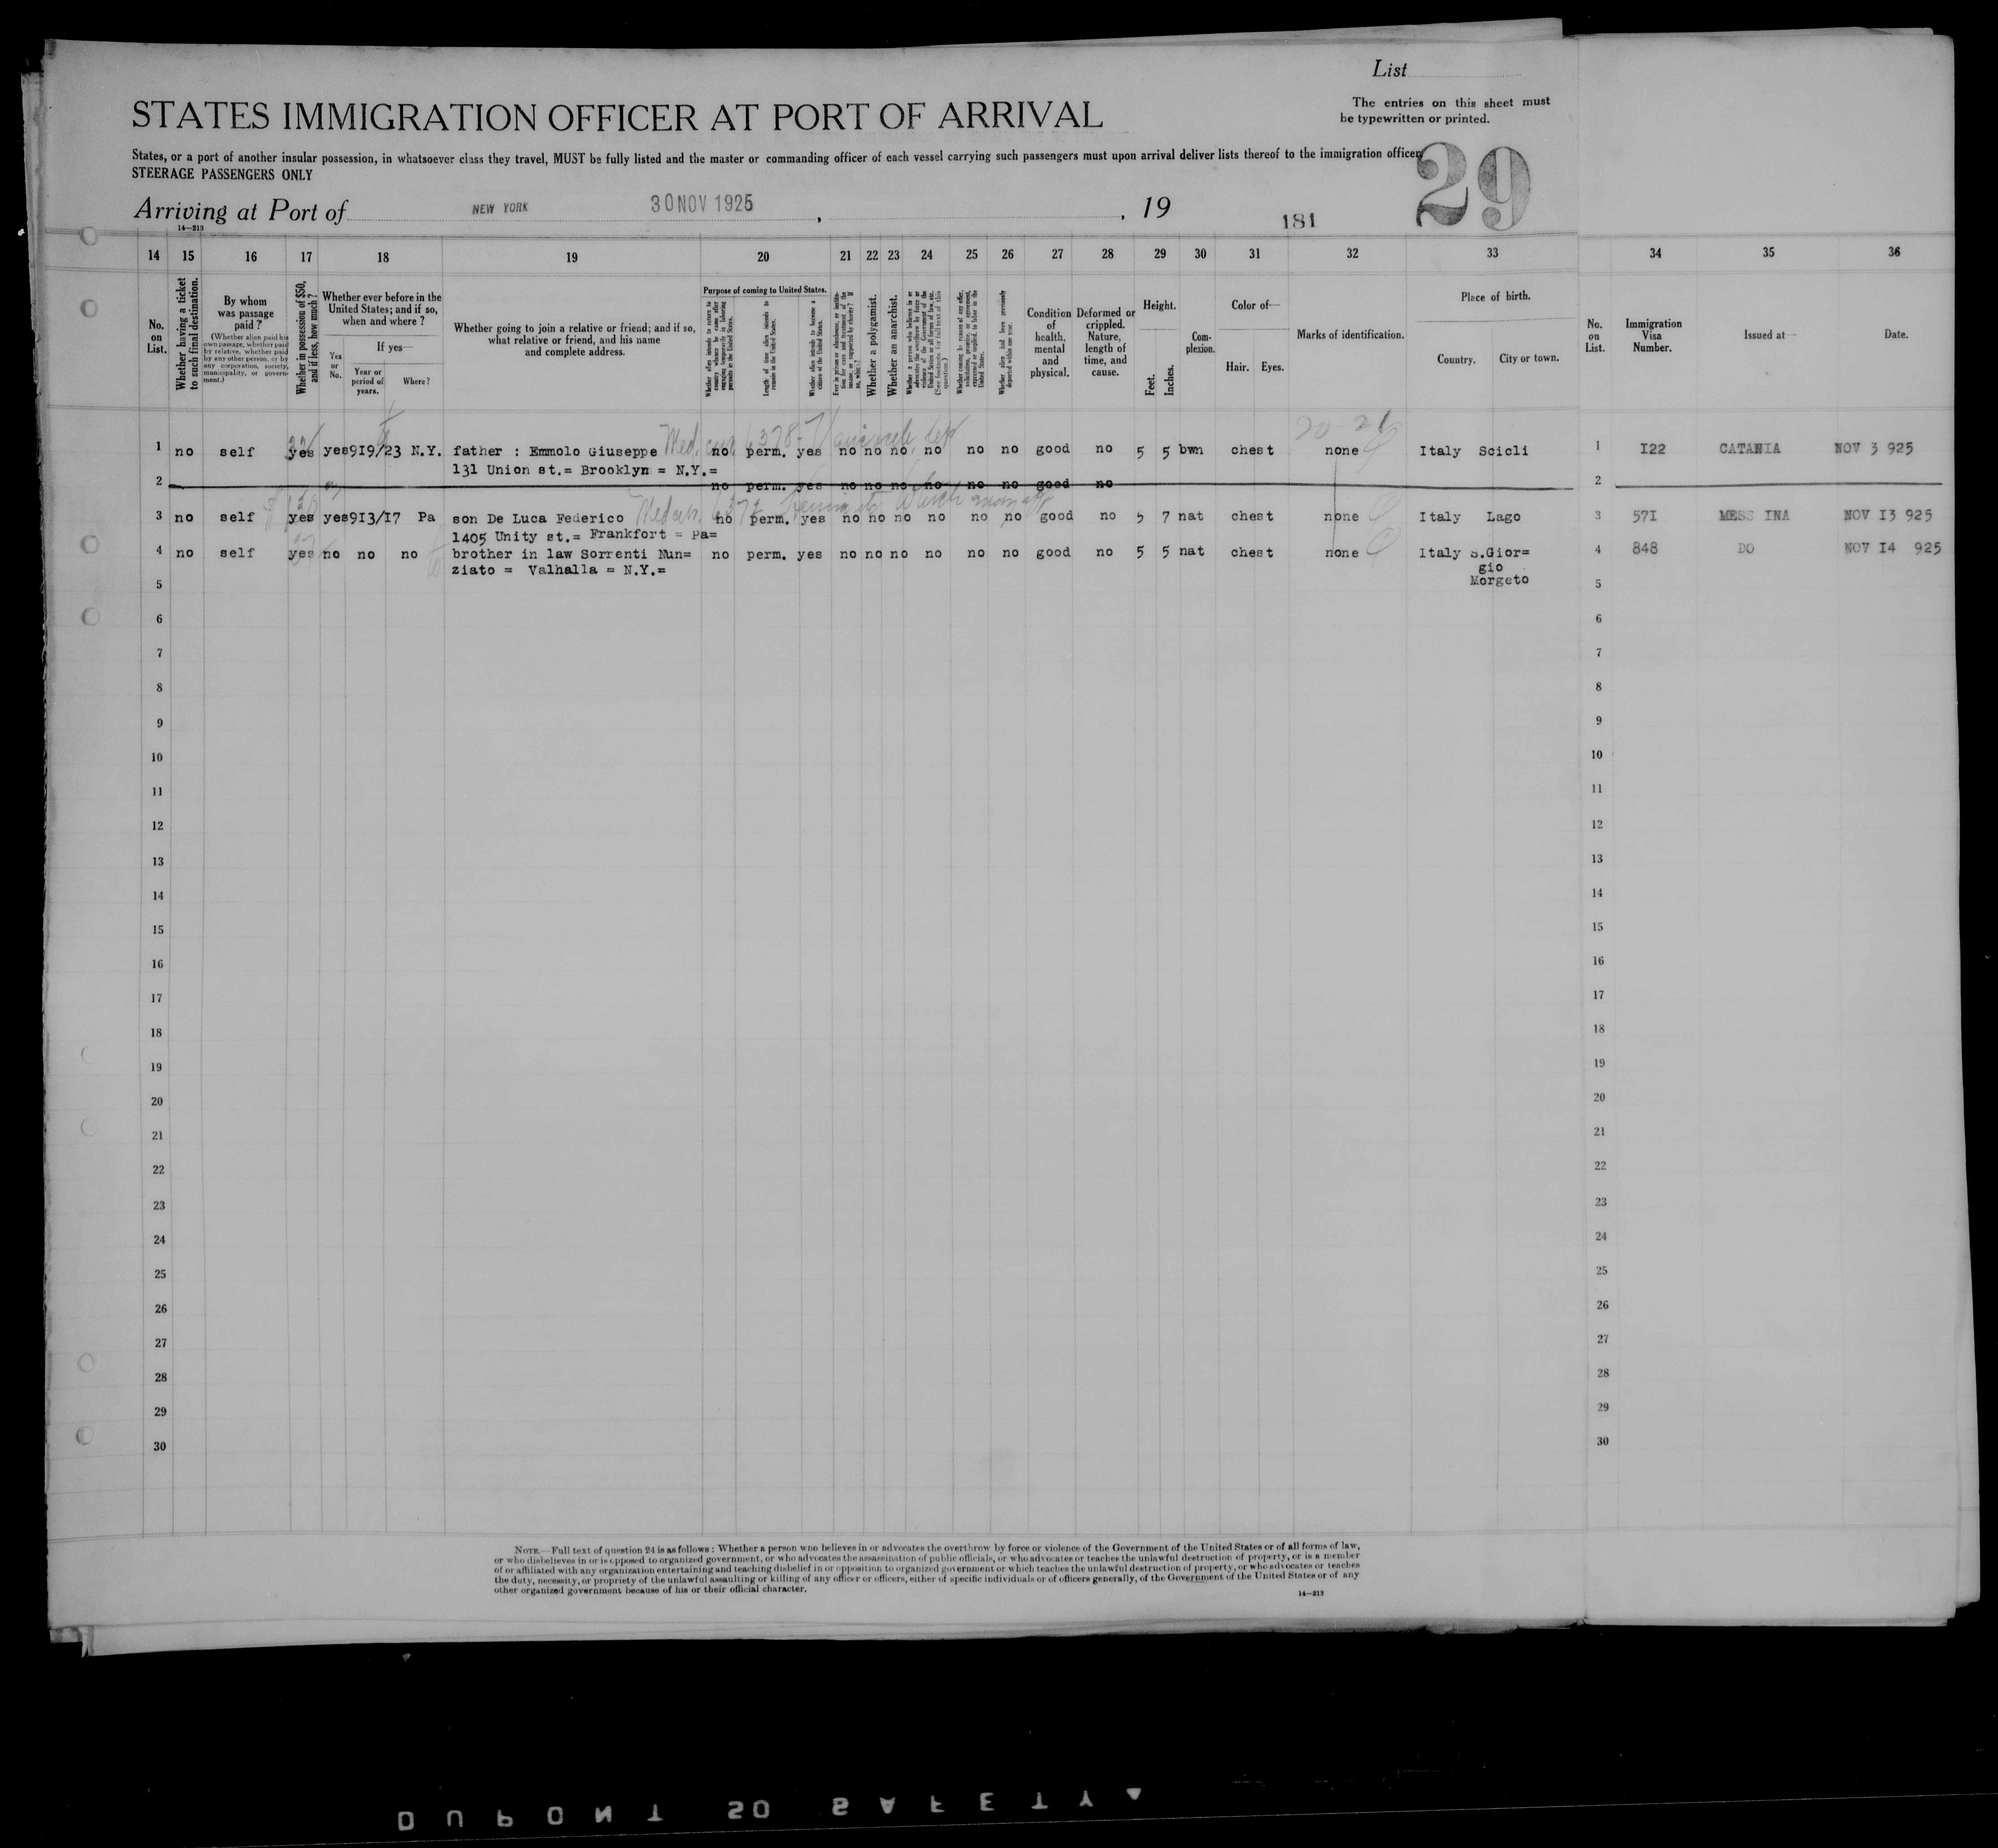 List
The entries on this sheet must
be typewritten or printed.
STATES IMMIGRATION OFFICER AT PORT OF ARRIVAL
States, or a port of another insular possession, in whatsoever class they travel, MUST be fully listed and the master or commanding officer of each vessel carrying such passengers must upon arrival deliver lists thereof to the immigration officer
STEERAGE PASSENGERS ONLY
29
Arriving at Port of NEW YORK 30 NOV 1925, , 19
181
14—213
14 15 16 17 18 19 20 21 22 23 24 25 26 27 28 29 30 31 32 33 34 35 36
No. on List.
Whether having a ticket to such final destination.
By whom was passage paid?
(Whether alien paid his own passage, whether paid by relative, whether paid by any other person, or by any corporation, society, municipality, or government.)
Whether in possession of $50, and if less, how much?
Whether ever before in the United States; and if so, when and where?
Yes or No.
If yes—
Year or period of years.
Where?
Whether going to join a relative or friend; and if so, what relative or friend, and his name and complete address.
Purpose of coming to United States.
Whether alien intends to return to country whence he came after engaging temporarily in laboring pursuits in the United States.
Length of time alien intends to remain in the United States.
Whether alien intends to become a citizen of the United States.
Ever in prison or almshouse, or institution for care and treatment of the insane, or supported by charity? If so, which?
Whether a polygamist.
Whether an anarchist.
Whether coming by reason of any offer, solicitation, promise, or agreement, expressed or implied, to labor in the United States.
Whether alien had been previously deported within one year.
Condition of health, mental and physical.
Deformed or crippled. Nature, length of time, and cause.
Height.
Feet. Inches.
Complexion.
Color of—
Hair. Eyes.
Marks of identification.
Place of birth.
Country. City or town.
No. on List.
Immigration Visa Number.
Issued at—
Date.
20-21
1 no self yes yes 919/23 N.Y. father : Emmolo Giuseppe no perm. yes no no no no no no good no 5 5 bwn chest none Italy Scicli 1 I22 CATANIA NOV 3 925
131 Union st.= Brooklyn = N.Y.=
2 no perm. yes no no no no no no good no 2
3 no self yes yes 913/17 Pa son De Luca Federico no perm. yes no no no no no no good no 5 7 nat chest none Italy Lago 3 57I MESSINA NOV I3 925
1405 Unity st.= Frankfort = Pa=
4 no self yes no no no brother in law Sorrenti Nun= no perm. yes no no no no no no good no 5 5 nat chest none Italy S.Gior= 4 848 DO NOV I4 925
ziato = Valhalla = N.Y.= gio
5 Morgeto 5
6 6
7 7
8 8
9 9
10 10
11 11
12 12
13 13
14 14
15 15
16 16
17 17
18 18
19 19
20 20
21 21
22 22
23 23
24 24
25 25
26 26
27 27
28 28
29 29
30 30
NOTE.—Full text of question 24 is as follows: Whether a person who believes in or advocates the overthrow by force or violence of the Government of the United States or of all forms of law,
or who disbelieves in or is opposed to organized government, or who advocates the assassination of public officials, or who advocates or teaches the unlawful destruction of property, or is a member
of or affiliated with any organization entertaining and teaching disbelief in or opposition to organized government or which teaches the unlawful destruction of property, or who advocates or teaches
the duty, necessity, or propriety of the unlawful assaulting or killing of any officer or officers, either of specific individuals or of officers generally, of the Government of the United States or of any
other organized government because of his or their official character.
14—213
DUPONT 50 SAFETY